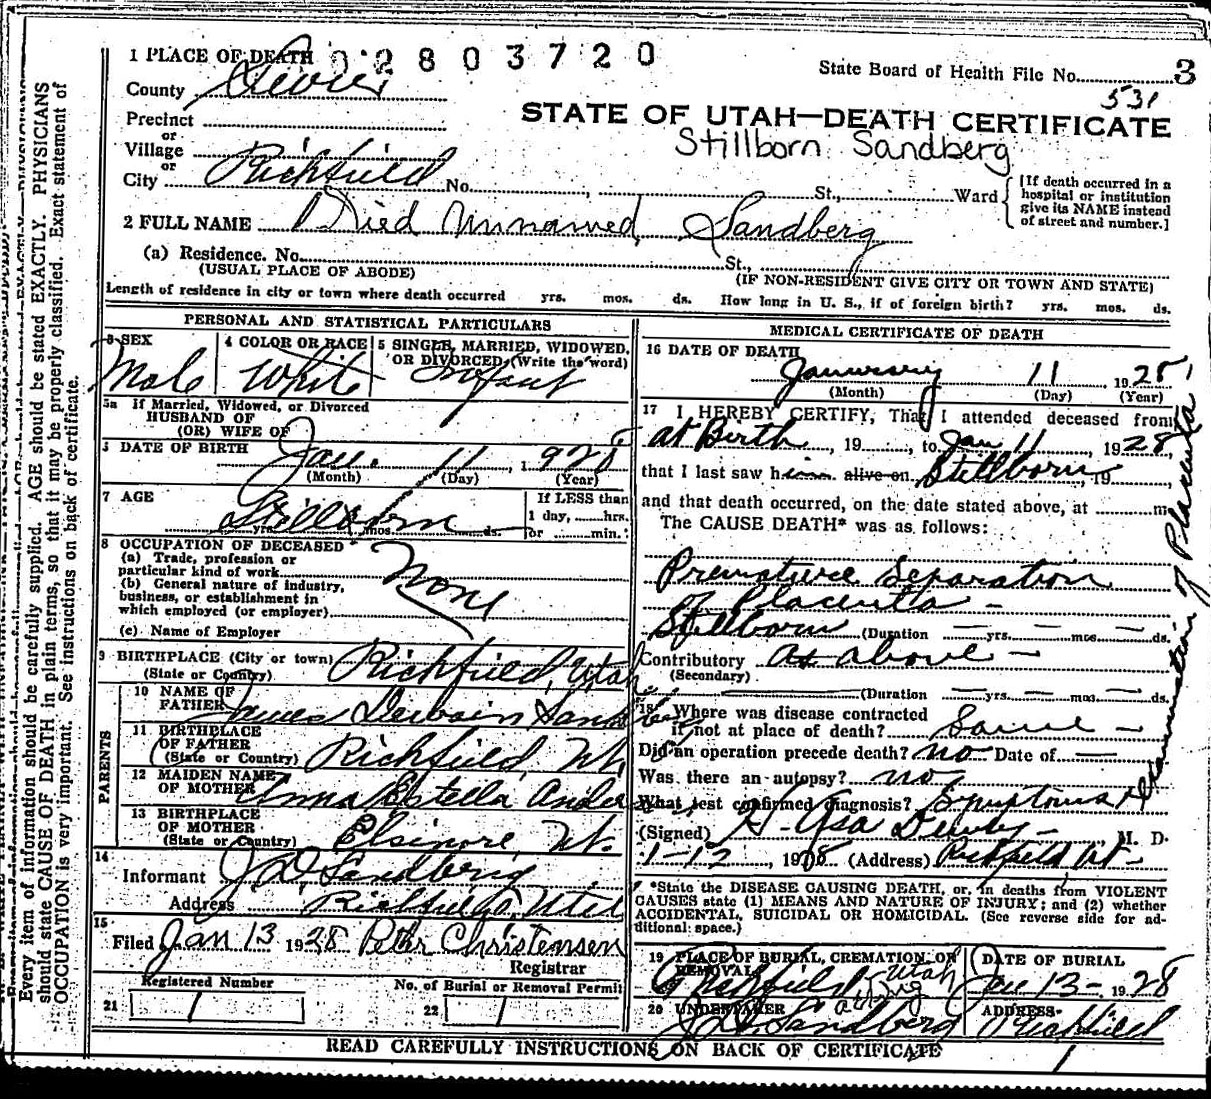 1 PLACE OF DEATH 02803720
State Board of Health File No. 3
County Sevier
531
STATE OF UTAH—DEATH CERTIFICATE
Precinct
or
Stillborn Sandberg
Village
or
City Richfield No. St., Ward
[If death occurred in a hospital or institution give its NAME instead of street and number.]
2 FULL NAME Died Unnamed Sandberg
(a) Residence. No. St.,
(USUAL PLACE OF ABODE) (IF NON-RESIDENT GIVE CITY OR TOWN AND STATE)
Length of residence in city or town where death occurred yrs. mos. ds. How long in U. S., if of foreign birth? yrs. mos. ds.
PERSONAL AND STATISTICAL PARTICULARS
3 SEX 4 COLOR OR RACE 5 SINGLE, MARRIED, WIDOWED,
OR DIVORCED (Write the word)
Male White Infant
5a If Married, Widowed, or Divorced
HUSBAND OF
(OR) WIFE OF
DATE OF BIRTH Jan. 11, 1928
(Month) (Day) (Year)
7 AGE If LESS than
Stillborn 1 day, hrs.
yrs. mos. ds. or min.
8 OCCUPATION OF DECEASED
(a) Trade, profession or
particular kind of work None
(b) General nature of industry,
business, or establishment in
which employed (or employer)
(c) Name of Employer
9 BIRTHPLACE (City or town) Richfield, Utah
(State or Country)
PARENTS
10 NAME OF
FATHER James Sandberg
11 BIRTHPLACE
OF FATHER
(State or Country) Richfield, Ut.
12 MAIDEN NAME
OF MOTHER Anna Estella
13 BIRTHPLACE
OF MOTHER
(State or Country) Elsinore, Ut.
14
Informant J D Sandberg
Address Richfield, Utah
15
Filed Jan 13 1928 Peter Christensen
Registrar
Registered Number No. of Burial or Removal Permit
21 1 22 1
MEDICAL CERTIFICATE OF DEATH
16 DATE OF DEATH
January 11, 1928
(Month) (Day) (Year)
17 I HEREBY CERTIFY, That I attended deceased from
at Birth, 19 , to Jan 11 1928
that I last saw him alive on Stillborn, 19
and that death occurred, on the date stated above, at m
The CAUSE DEATH* was as follows:
Premature Separation
of Placenta —
Stillborn (Duration — yrs. — mos. — ds.
Contributory as above —
(Secondary)
(Duration — yrs. — mos. — ds.
18 Where was disease contracted
if not at place of death? Same —
Did an operation precede death? no Date of —
Was there an autopsy? no
What test confirmed diagnosis? Symptoms & Examination of Placenta
(Signed) H Asa Dewey M. D.
1-12, 1928 (Address) Richfield Ut
*State the DISEASE CAUSING DEATH, or, in deaths from VIOLENT
CAUSES state (1) MEANS AND NATURE OF INJURY; and (2) whether
ACCIDENTAL, SUICIDAL OR HOMICIDAL. (See reverse side for ad-
ditional space.)
19 PLACE OF BURIAL, CREMATION, OR
REMOVAL DATE OF BURIAL
Richfield Utah Jan 13 - 1928
20 UNDERTAKER ADDRESS
J D Sandberg Richfield
READ CAREFULLY INSTRUCTIONS ON BACK OF CERTIFICATE
1
Every item of information should be carefully supplied. AGE should be stated EXACTLY. PHYSICIANS
should state CAUSE OF DEATH in plain terms, so that it may be properly classified. Exact statement of
OCCUPATION is very important. See instructions on back of certificate.